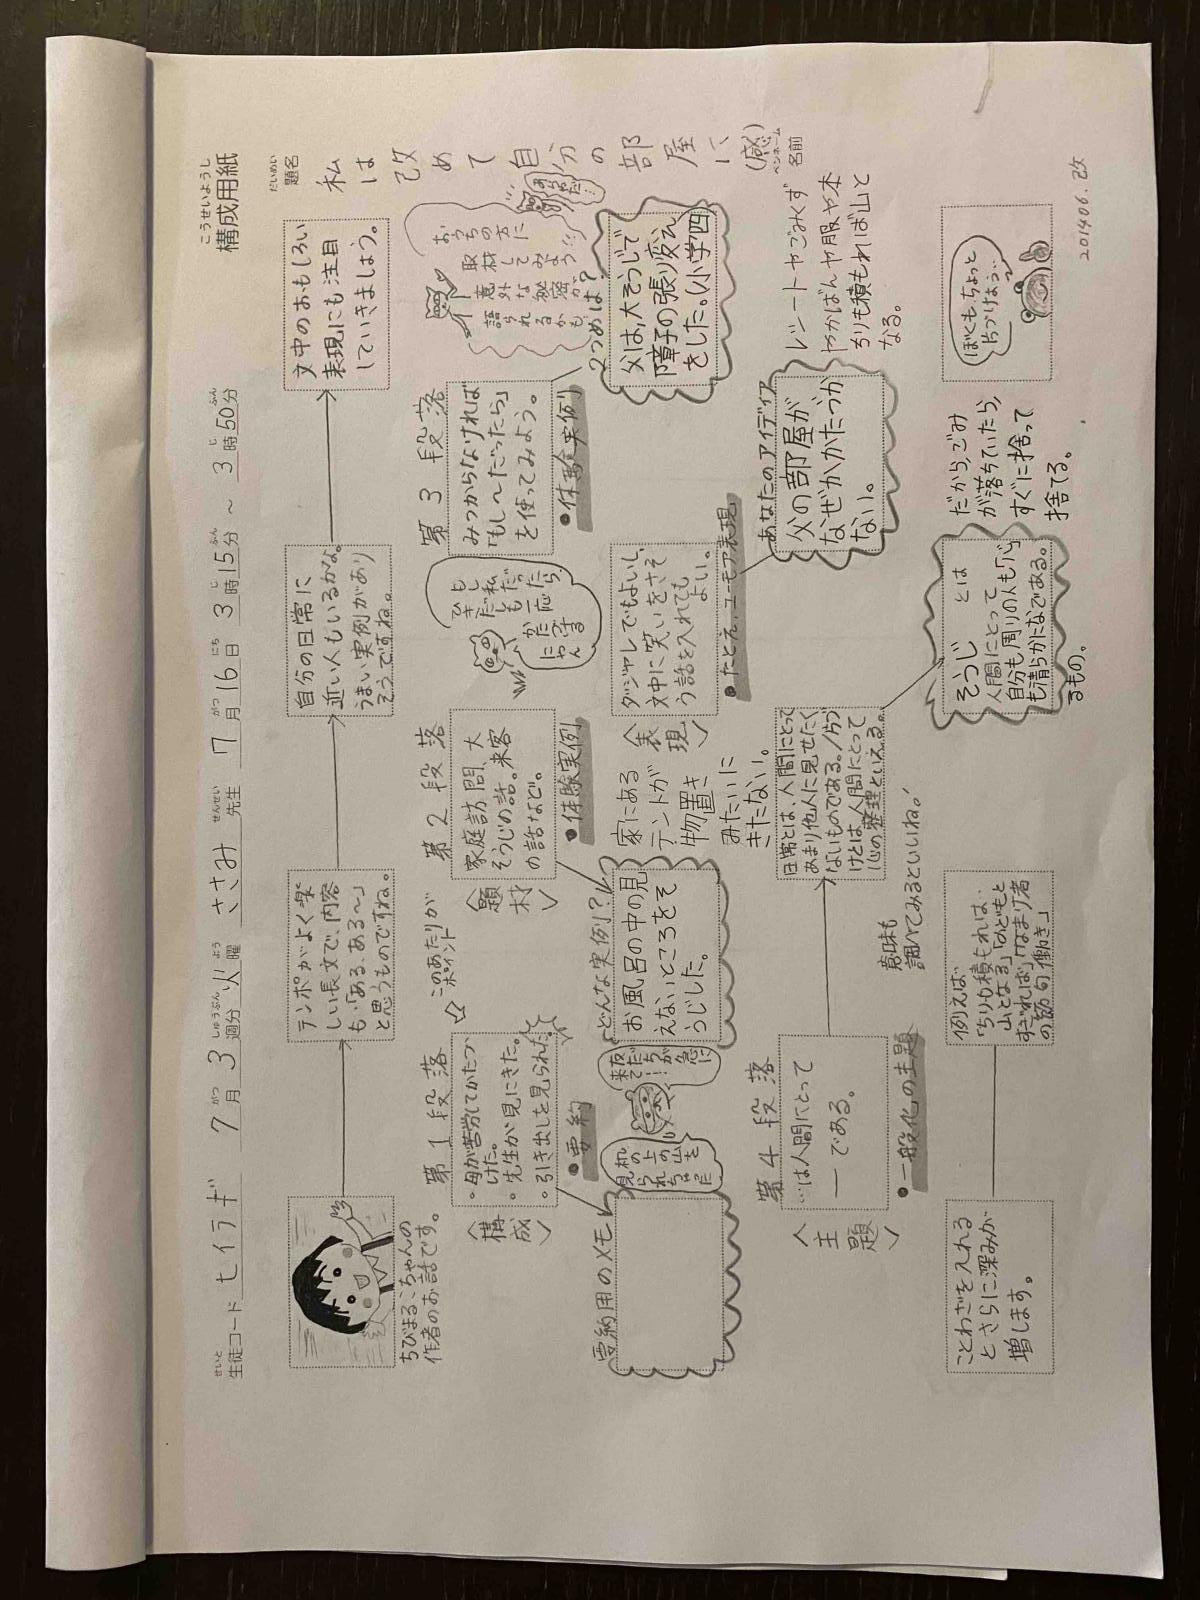 こうせいようし
構成用紙
せいと
生徒コード ヒイラギ 7月 3週分 火曜 ささみ先生 7月16日 3時15分 〜 3時50分
がつ しゅうぶん よう せんせい がつ にち じ ふん じ ふん
だいめい
題名
私は改めて自分の部屋に
(感)
ペンネーム
名前
ちびまるこちゃんの
作者のお話です。
テンポがよく楽
しい長文で、内容
も、「ある、ある〜」
と思うものですね。
自分の日常に
近い人もいるかな。
うまい実例があり
そうですね。
文中のおもしろい
表現にも注目
していきましょう。
第1段落
〈構成〉
・母が苦労してかたづ
けた。
・先生が見にきた。
・引き出しを見られた。
・要約
このあたりが
ポイント
要約用のメモ
第2段落
〈題材〉
家庭訪問、大
そうじの話。来客
の話など。
・体験実例
どんな実例?
お風呂の中の見
えないところをそ
うじした。
第3段落
みつからなければ
「もし〜だったら」
を使ってみよう。
・体験実例
おうちの方に
取材してみよう!!
意外な秘密が
語られるかも
2つめは?
父は、大そうじで
障子の張り変え
をした。(小学四
家にある
テントが
物置き
みたいに
きたない。
〈表現〉
ダジャレでもよいし、
文中に笑いをさそ
う話を入れても
よい。
・たとえ、ユーモア表現
あなたのアイディア
父の部屋が
なぜかかたづか
ない。
レシートやごみくず
やかばんや服や本
ちりも積もれば山と
なる。
第4段落
〈主題〉
…は人間にとって
― である。
・一般化の主題
日常とは、人間にとって
あまり他人に見せたく
ないものである。/かたづ
けとは、人間にとって
心の整理といえる。
そうじ とは
人間にとって
自分も周りの人も「心」
も清らかになである。
るもの。
だから、ごみ
が落ちていたら、
すぐに捨って
捨てる。
ことわざを入れる
とさらに深みが
増します。
例えば
「ちりも積もれば、
山となる」「のどもと
すぎれば」「なまけ者
の節句働き」
意味も
調べてみるといいね!
ぼくも、ちょっと
片づけなぁ…
201406.改